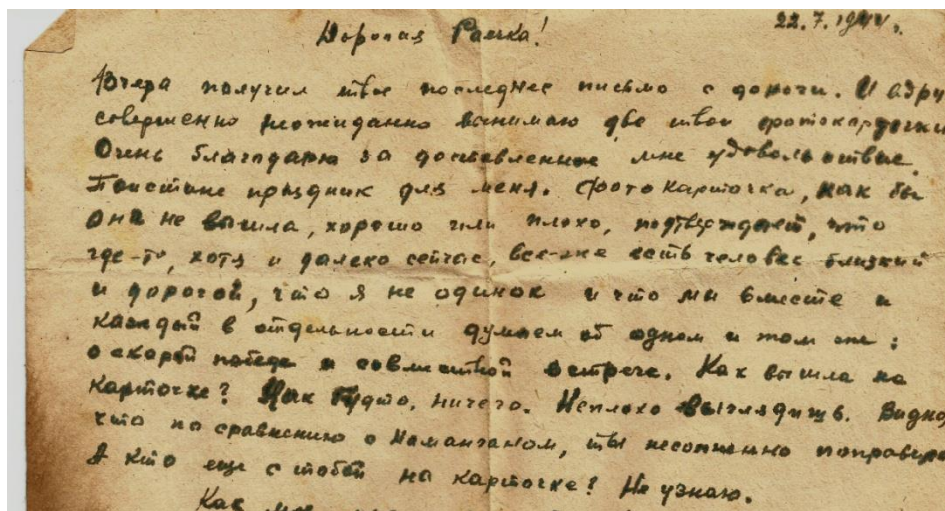 22.7.1944.
Дорогая Раечка!
Вчера получил твое последнее письмо с дороги. И вдру
совершенно неожиданно вынимаю две твои фотокарточки
Очень благодарю за доставленное мне удовольствие.
Поистине праздник для меня. Фотокарточка, как бы
она не вышла, хорошо или плохо, подтверждает, что
где-то, хотя и далеко сейчас, все-же есть человек близкий
и дорогой, что я не одинок и что мы вместе и
каждый в отдельности думаем об одном и том же:
о скорой победе и совместной встрече. Как вышла на
карточке? Как будто, ничего. Неплохо выглядишь. Видно,
что по сравнению с Наманганом, ты несомненно поправила
А кто еще с тобой на карточке? Не узнаю.
Как